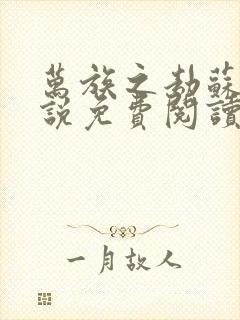 萬族之劫蘇
說免費閱讀
一月故人